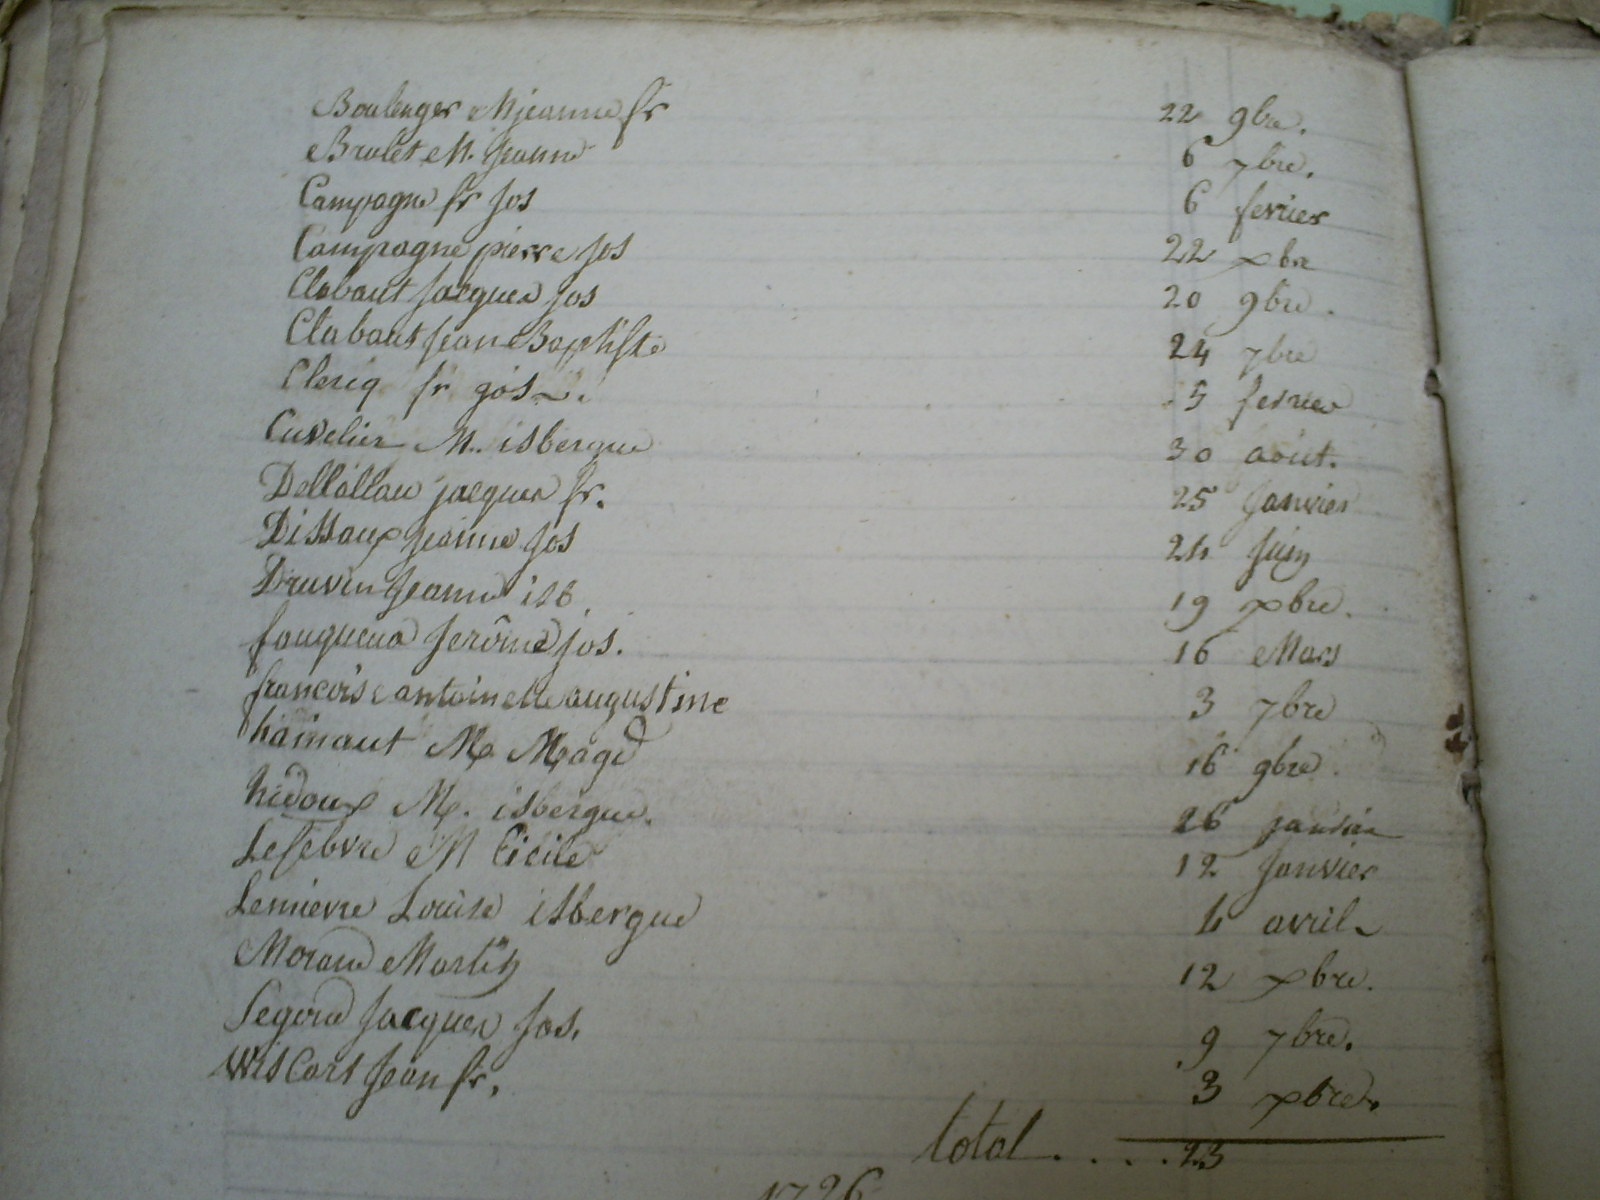 Boulenger Mjeanne fr 22 9bre.
Brulet M. Jeanne 6 7bre.
Campagne fr jos 6 fevrier
Campagne pierre jos 22 xbre
Clabaut Jacques jos 20 9bre.
Clabaut Jean Baptiste 24 7bre
Clericq fr jos. 5 fevrier
Cuvelier M. isbergue 30 août.
Dellallau jacques fr. 25 Janvier
Dissaux Jeanne Jos 24 Juin
Druvin Jeanne isb. 19 xbre.
fouqueua Jerôme jos. 16 Mars
francois antoinette augustine 3 7bre
hainaut M Magd 16 9bre.
hidoux M. isbergue. 26 janvier
Lefebvre M Cicile 12 Janvier
Lemievre Louise isbergue 4 avril
Morand Martin 12 xbre.
Segond Jacques Jos. 9 7bre.
Wiscart Jean fr. 3 xbre.
total....23
1726